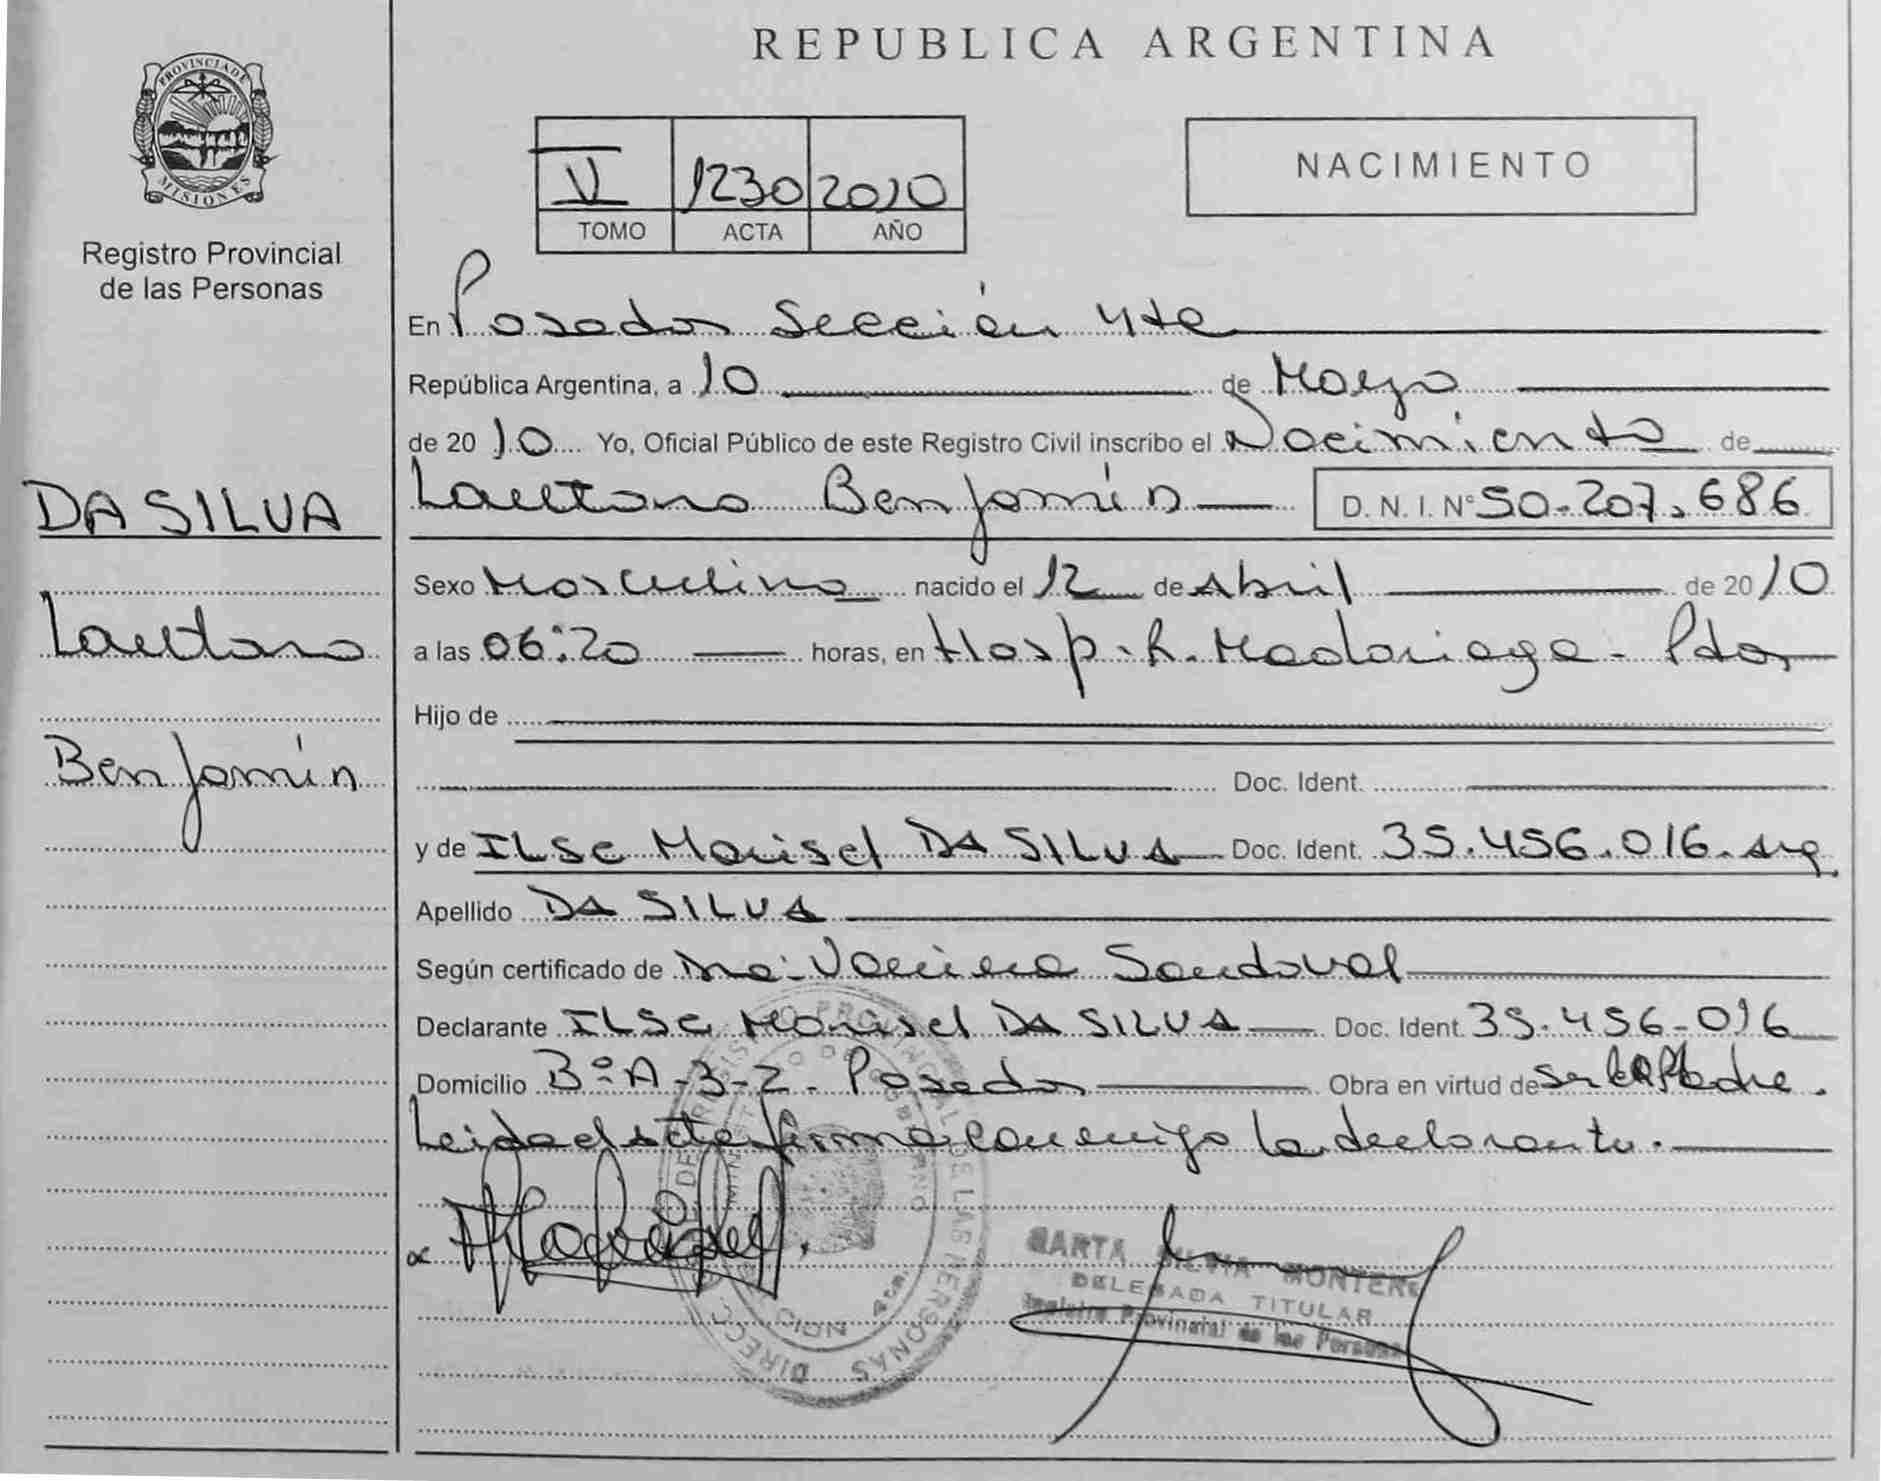 REPUBLICA ARGENTINA
PROVINCIA DE
MISIONES
Registro Provincial
de las Personas
V 1230 2010
TOMO ACTA AÑO
NACIMIENTO
En Posadas Sección 4ta
República Argentina, a 10 de Mayo
de 2010 Yo, Oficial Público de este Registro Civil inscribo el Nacimiento de
DA SILVA
Lautaro
Benjamín
Lautaro Benjamín D. N. I. Nº 50.207.686
Sexo Masculino nacido el 12 de Abril de 2010
a las 06:20 horas, en Hosp. R. Madariaga - Pdas
Hijo de
Doc. Ident.
y de ILSE Marisel DA SILVA Doc. Ident. 35.456.016. Arg
Apellido DA SILVA
Según certificado de Sandoval
Declarante ILSE Marisel DA SILVA Doc. Ident. 35.456.016
Domicilio Bº A-3-2. Posadas Obra en virtud de ser la Madre.
Leida el acta firma conmigo la declarante.
MARTA SILVIA MONTERO
DELEGADA TITULAR
Registro Provincial de las Personas